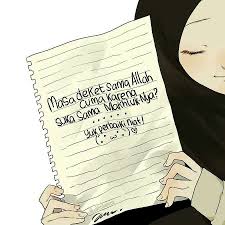 Masa deket sama Allah
Cuma karena
suka sama Makhluk-Nya?
Yuk perbaiki niat!